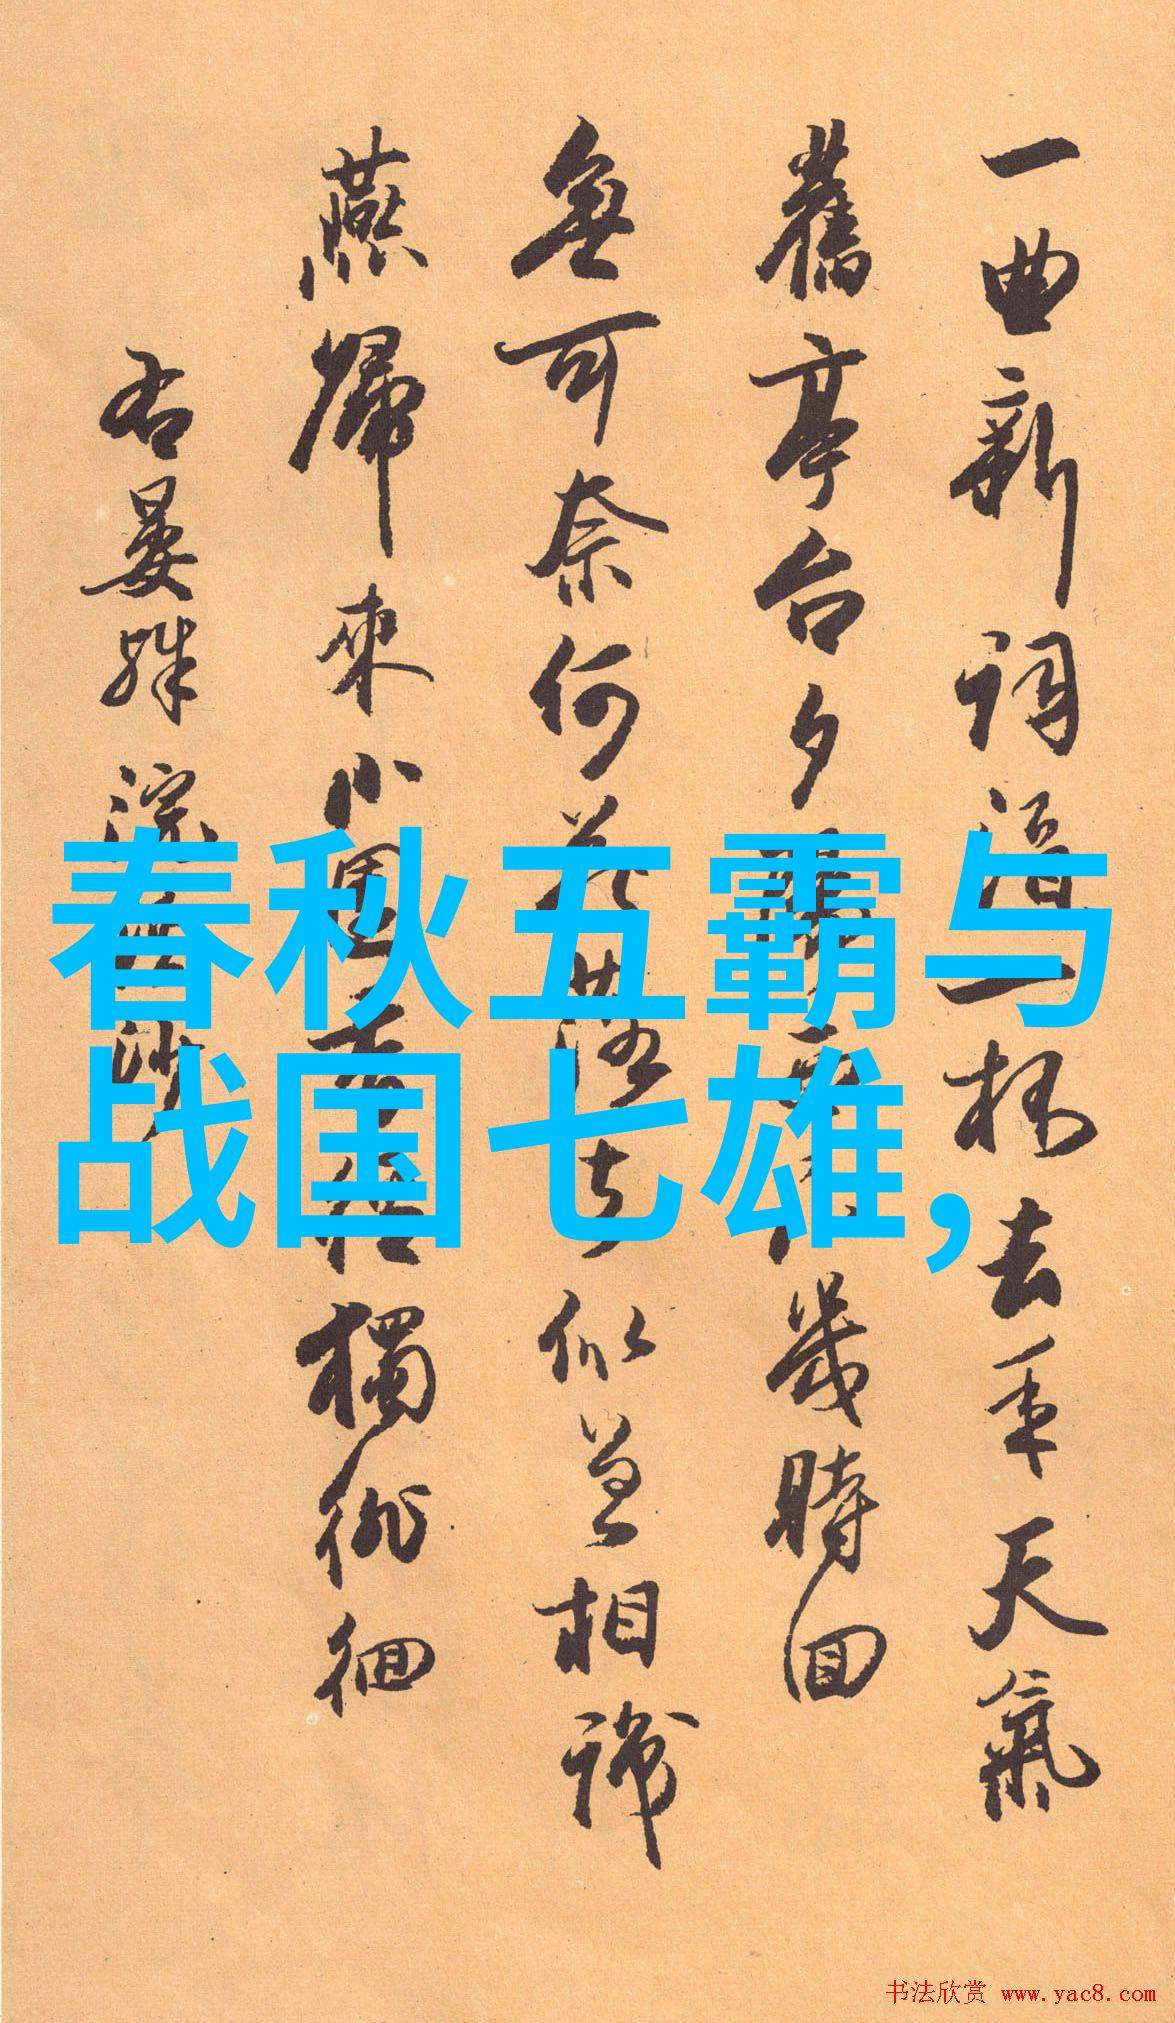 一曲新詞酒一杯去年天氣
舊亭台夕陽西下幾時回
無可奈何花落去似曾相識
燕歸來小園香徑獨徘徊
右晏殊浣溪沙
春秋五霸与
战国七雄,
书法欣赏 www.yac8.com